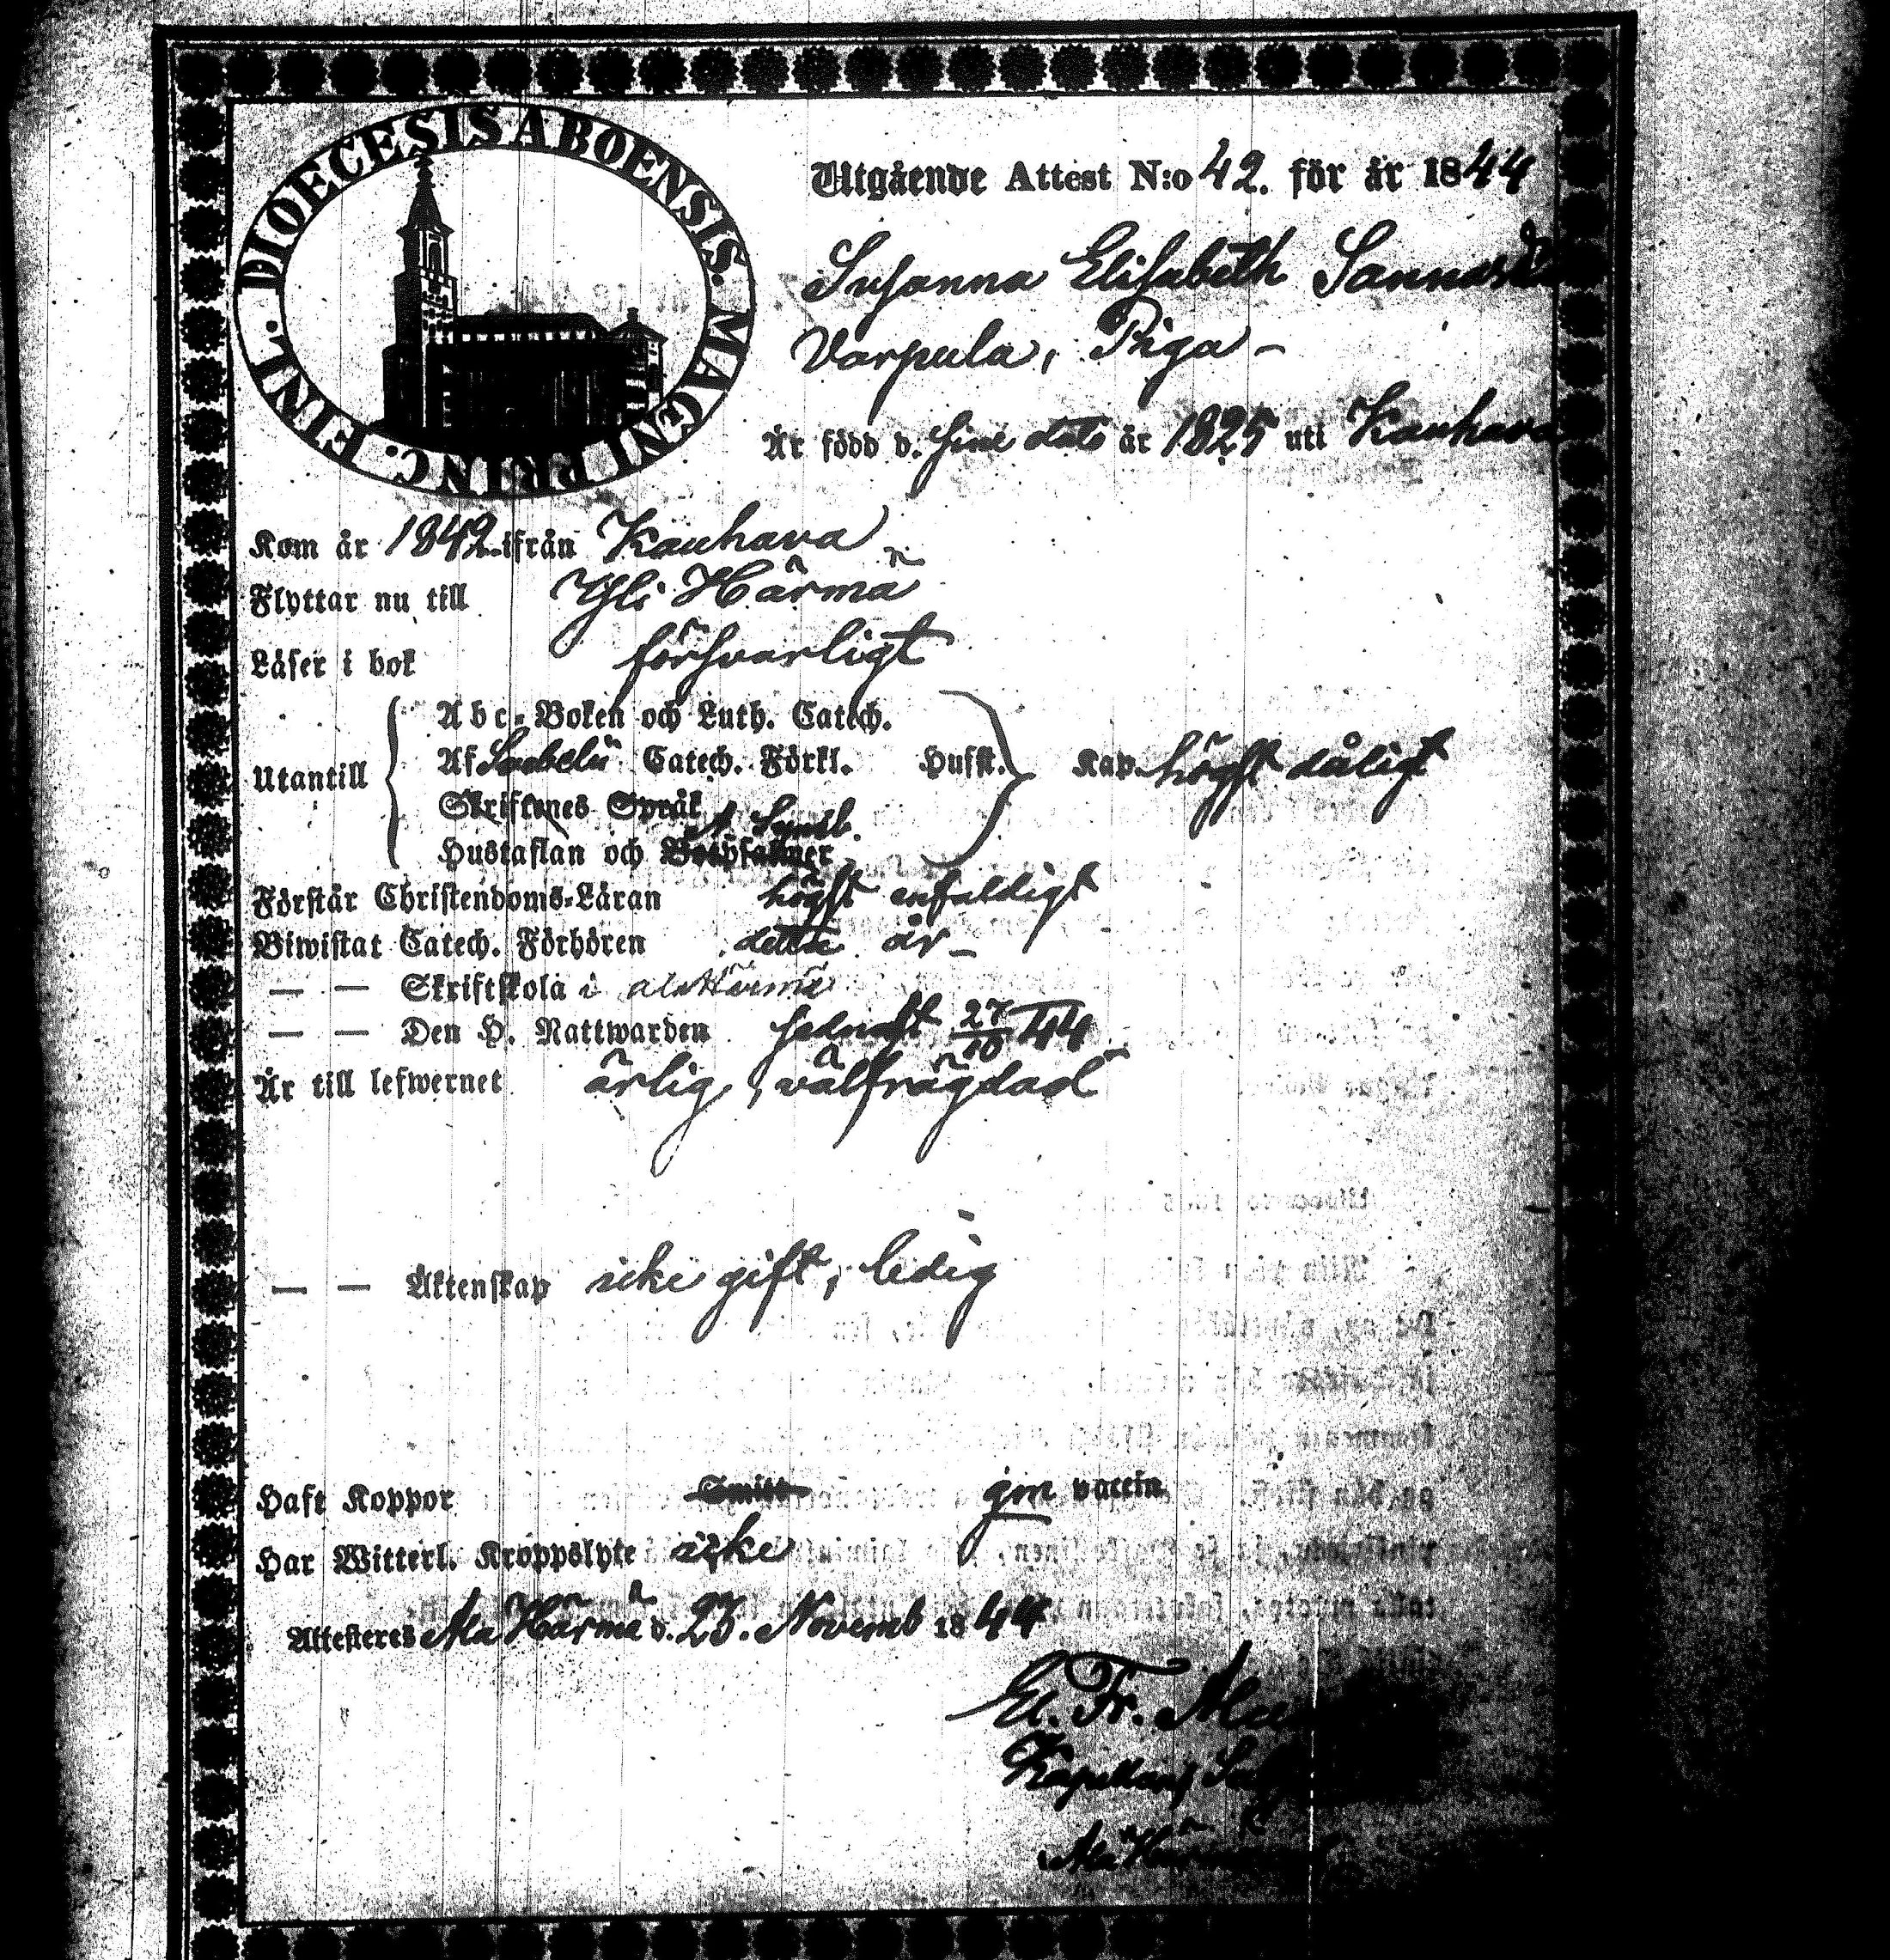 DIOECESIS ABOENSIS. MAGNI PRINC. FINL.
Utgående Attest N:o 42. för år 1844
Susanna Elisabeth
Varpula, Piga -
Är född d. sine dato år 1825 uti Kauhava
Kom år 1842 ifrån Kauhava
Flyttar nu till Yli Härmä
Läser i bok försvarligt
Abc-Boken och Luth. Catech.
Utantill Af Catech. Förkl. Hussk. Kap. högst dåligt
Skriftenes Språk
A. Symb.
Hustaflan och Botpsalmer
Förstår Christendoms-Läran högst enfaldigt
Biwistat Catech. Förhören detta år -
— — Skriftskola i alaHärmä
— — Den H. Nattwarden sednast 27/10 44
Är till lefwernet ärlig, välfrägdad
— — Äktenskap icke gift, ledig
Haft Koppor Smitt gm vaccin
Har Witterl. Kroppslyte icke
Attesteres Ala Härmä d. 23. Novemb 1844
El. Fr.
Kapellans
Ala Härmä